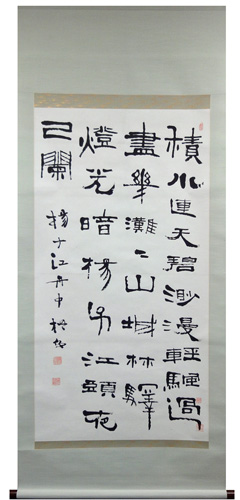 積水連天碧渺漫輕過
盡幾灘〻山城林驛
燈光暗楊子江頭夜
已闌
揚子江舟中